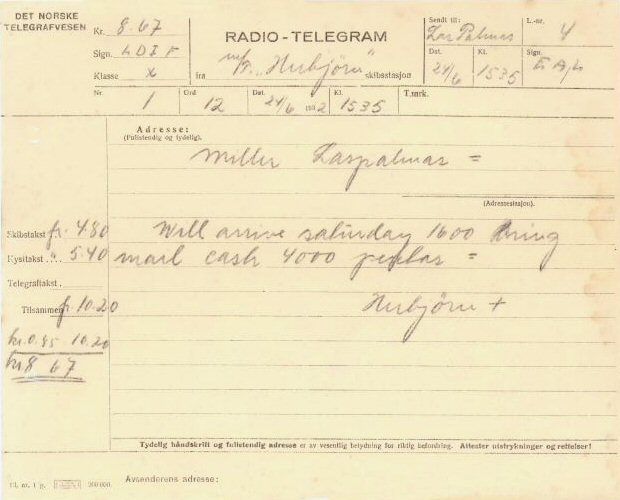 DET NORSKE
TELEGRAFVESEN
Kr. 8.67
Sign. LDIF
Klasse x
RADIO-TELEGRAM
fra m/s "Herbjörn" skibsstasjon
Sendt til: Las Palmas
L.-nr. 4
Dat. 24/6
Kl. 1535
Sign.
Nr 1
Ord 12
Dat. 24/6 1932
Kl. 1535
T.mrk.
Adresse:
(Fullstendig og tydelig).
Miller Laspalmas =
(Adressestasjon).
Skibstakst fr. 4.80
Will arrive saturday 1600 bring
Kysttakst " 5.40
mail cash 4000 =
Telegraftakst
Tilsammen fr. 10.20
Herbjörn +
kr. 0.85 10.20
kr 8 67
Tydelig håndskrift og fullstendig adresse er av vesentlig betydning for riktig befordring. Attester utstrykninger og rettelser!
Bl. nr. 1 g. 200 000.
Avsenderens adresse: